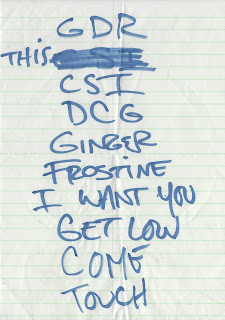 GDR
THIS
CSI
DCG
GINGER
FROSTINE
I WANT YOU
GET LOW
COME
TOUCH